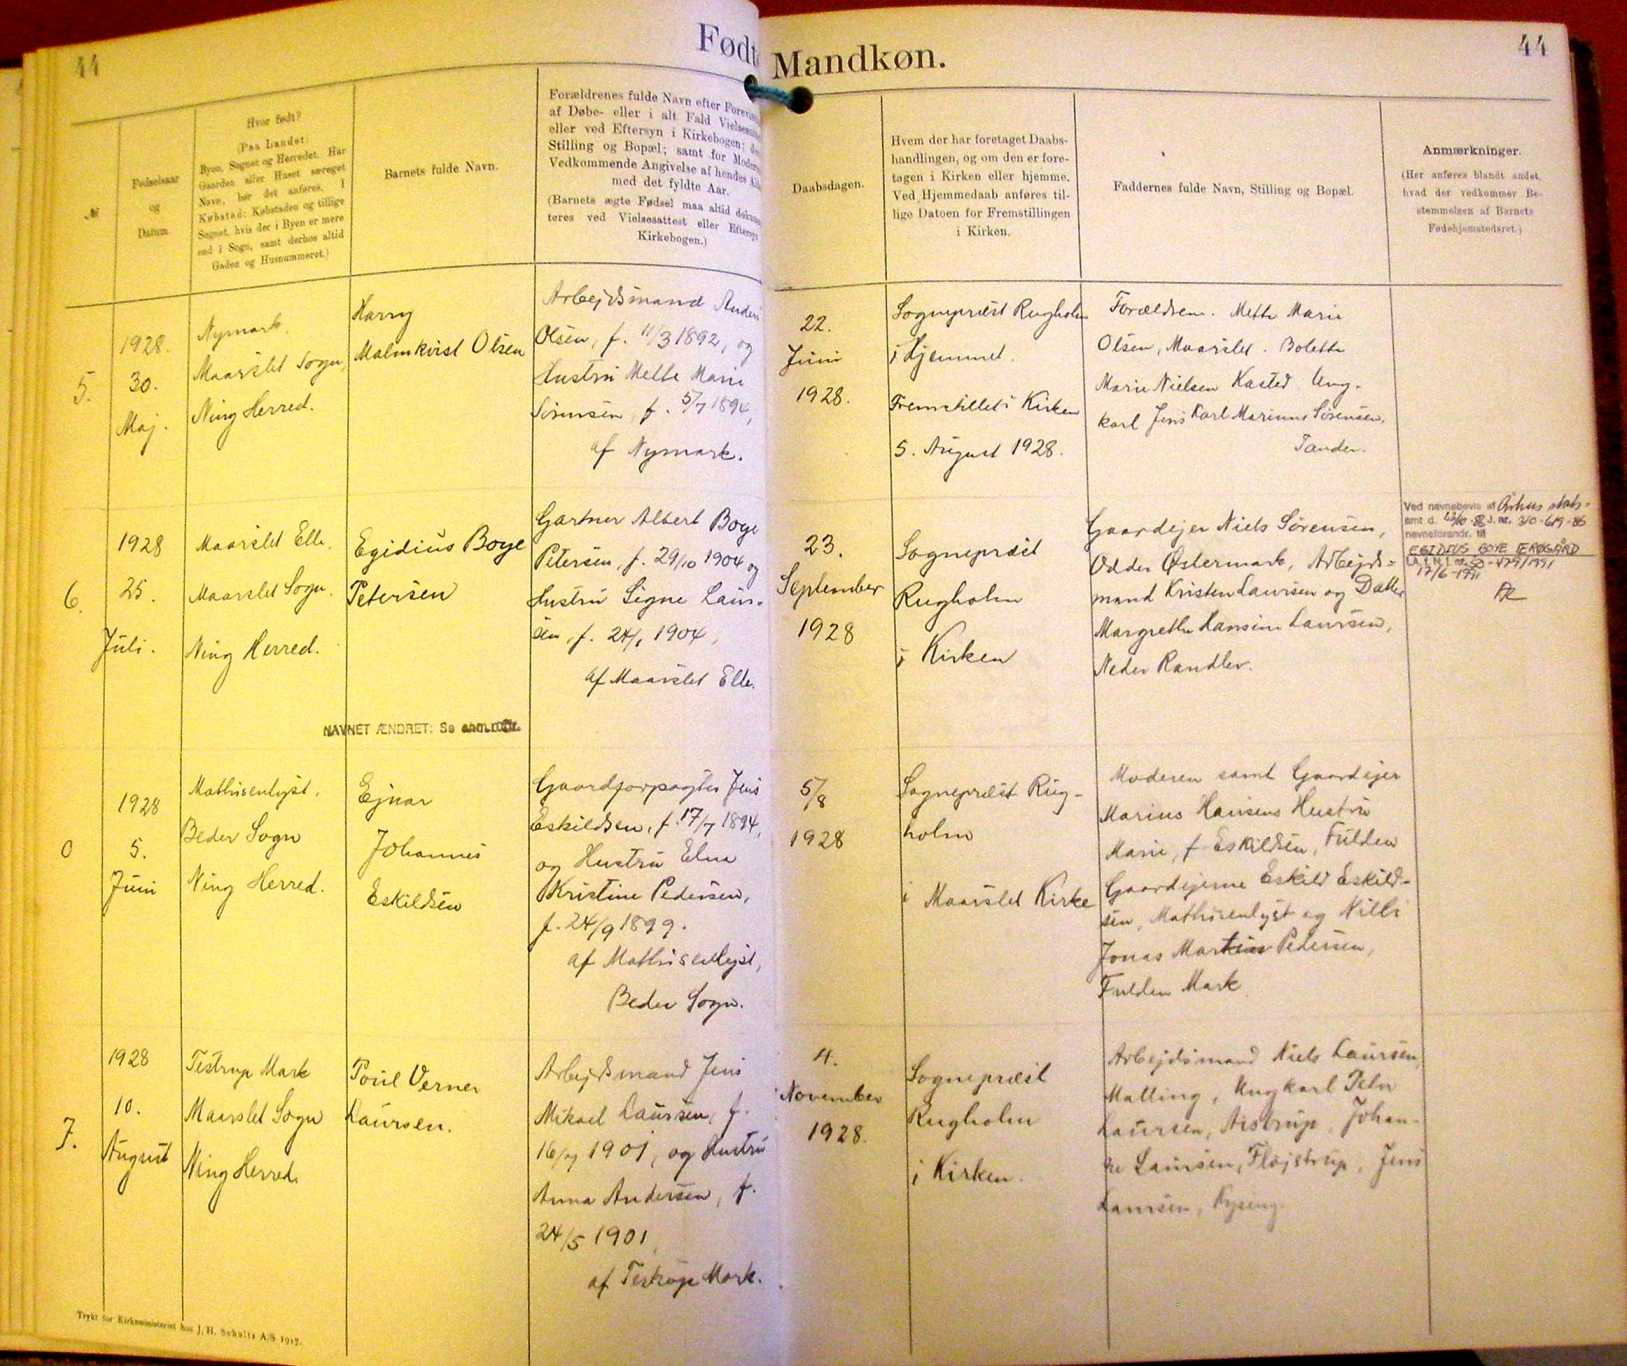 44
Født
Mandkøn.
44
№
Fødselsaar
og
Datum.
Hvor født?
(Paa Landet:
Byen, Sognet og Herredet. Har
Gaarden eller Huset særeget
Navn, bør det anføres. I
Købstad: Købstaden og tillige
Sognet, hvis der i Byen er mere
end 1 Sogn, samt derhos altid
Gaden og Husnummeret.)
Barnets fulde Navn.
Forældrenes fulde Navn efter
af Døbe- eller i alt Fald
eller ved Eftersyn i Kirkebogen;
Stilling og Bopæl; samt for
Vedkommende Angivelse af hendes
med det fyldte Aar.
(Barnets ægte Fødsel maa altid
teres ved Vielsesattest eller
Kirkebogen.)
Daabsdagen.
Hvem der har foretaget Daabs-
handlingen, og om den er fore-
tagen i Kirken eller hjemme.
Ved Hjemmedaab anføres til-
lige Datoen for Fremstillingen
i Kirken.
Faddernes fulde Navn, Stilling og Bopæl.
Anmærkninger.
(Her anføres blandt andet,
hvad der vedkommer Be-
stemmelsen af Barnets
Fødehjemstedsret.)
5.
1928.
30.
Maj.
Nymark.
Maarslet Sogn,
Ning Herred.
Harry
Malmkvist Olsen
Arbejdsmand Anders
Olsen, f. 11/3 1892, og
Hustru Mette Marie
Sørensen, f. 5/7 1894,
af Nymark.
22.
Juni
1928.
Sognepræst Rugholm
i Hjemmet.
Fremstillet i Kirken
5. August 1928.
Forældrene. Mette Marie
Olsen, Maarslet. Bolette
Marie Nielsen Kasted. Ung-
karl Jens Karl Marinus Sørensen,
Tander.
6.
1928
25.
Juli.
Maarslet Elle.
Maarslet Sogn.
Ning Herred.
Egidius Boye
Petersen
NAVNET ÆNDRET: Se
Gartner Albert Boye
Petersen, f. 29/10 1904 og
Hustru Signe Laur-
sen, f. 24/1 1904,
af Maarslet Elle.
23.
September
1928
Sognepræst
Rugholm
i Kirken
Gaardejer Niels Sørensen,
Odder Østermark, Arbejds-
mand Kristen Laursen og Datter
Margrethe Hansine Laursen,
Neder Randlev.
Ved navnebevis af Århus stats-
amt d. J. nr. 310-619-86
navneforandr. til
EGIDIUS BOYE
17/6-1991
0
1928
5.
Juni
Mathisenlyst.
Beder Sogn
Ning Herred.
Ejnar
Johannes
Eskildsen
Gaardforpagter Jens
Eskildsen, f. 17/7 1894,
og Hustru Elna
Kristine Pedersen,
f. 24/9 1899.
af Mathisenlyst,
Beder Sogn.
5/8
1928
Sognepræst Rug-
holm
i Maarslet Kirke
Moderen samt Gaardejer
Marius Hansens Hustru
Marie, f. Eskildsen, Fulden
Gaardejerne Eskild Eskild-
sen, Mathisenlyst og Niels
Jonas Martin Pedersen,
Fulden Mark
7.
1928
10.
August
Testrup Mark
Maarslet Sogn
Ning Herred.
Poul Verner
Laursen.
Arbejdsmand Jens
Mikael Laursen, f.
16/7 1901, og Hustru
Anna Andersen, f.
24/5 1901,
af Testrup Mark.
4.
November
1928.
Sognepræst
Rugholm
i Kirken.
Arbejdsmand Niels Laursen,
Malling, Ungkarl Peter
Laursen, Astrup, Johan-
ne Laursen, Fløjstrup, Jens
Laursen, Kysing.
Trykt for Kirkeministeriet hos J. H. Schultz A/S 1917.